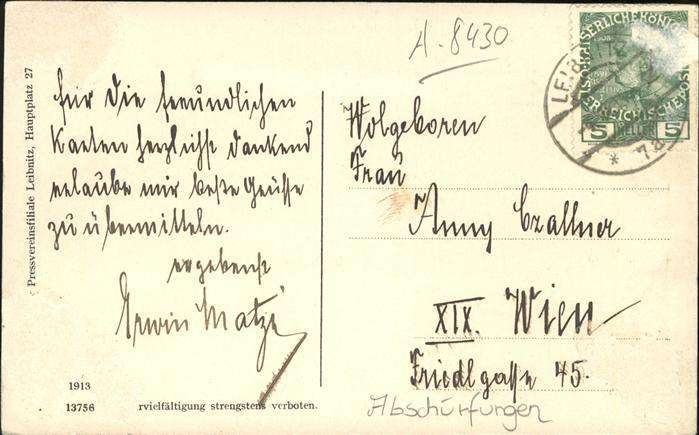 A-8430
Für die freundlichen
Karten herzlichst dankend
erlaube mir beste Grüsse
zu übermitteln.
ergebenst
Erwin Matzé
Wolgeboren
Frau
Anny Czallner
XIX. Wien
Friedlgasse 45.
Abschürfungen
Pressvereinsfiliale Leibnitz, Hauptplatz 27
1913
13756
rvielfältigung strengstens verboten.
5 HELLER 5